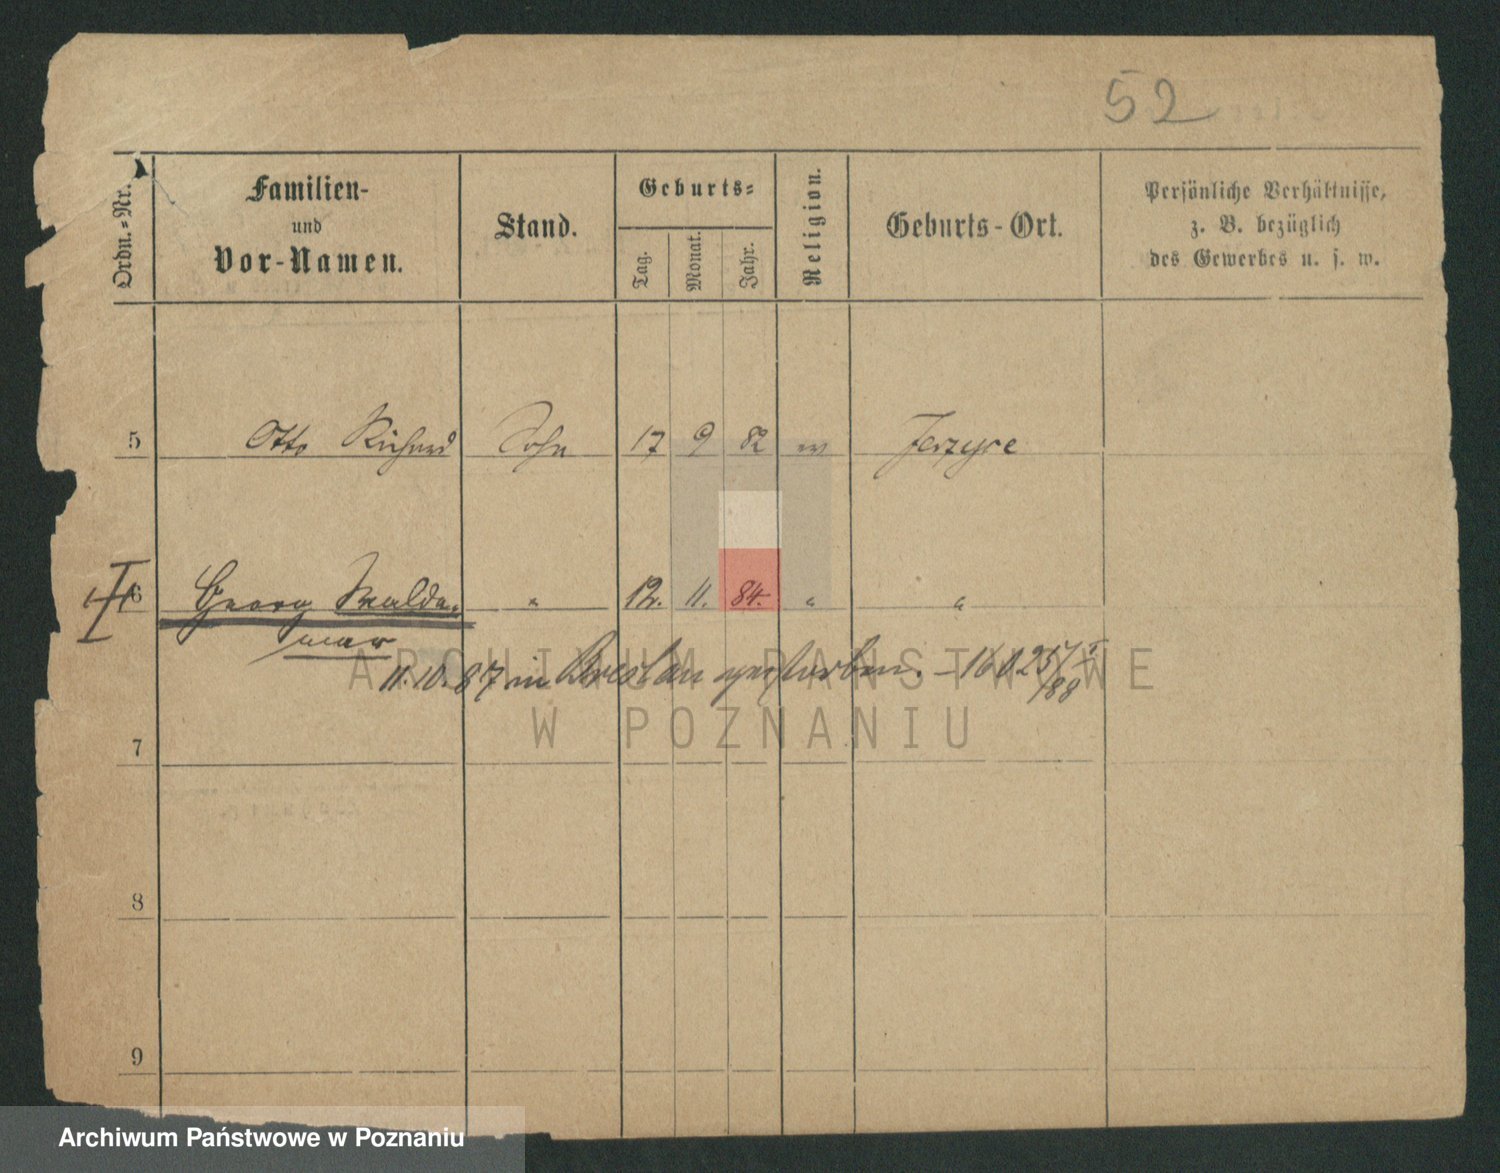 52
Ordn.-Nr.
Familien-
und
Vor-Namen.
Stand.
Geburts-
Tag.
Monat.
Jahr.
Religion.
Geburts-Ort.
Persönliche Verhältnisse,
z. B. bezüglich
des Gewerbes u. s. w.
5 Otto Richard Sohn 17 9 82 ev Jerzyce
6 Georg Walde- " 12. 11. 84. " "
mar
11.10.87 in Breslau gestorben.
ARCHIWUM PAŃSTWOWE
W POZNANIU
7
8
9
Archiwum Państwowe w Poznaniu